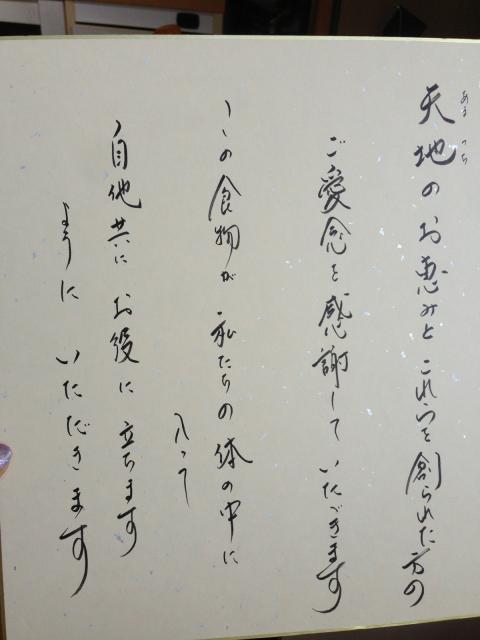 天地のお恵みとこれらを創られた方の
あめ つち
ご愛念を感謝していただきます
この食物が私たちの体の中に
入って
自他共にお役に立ちます
ように いただきます